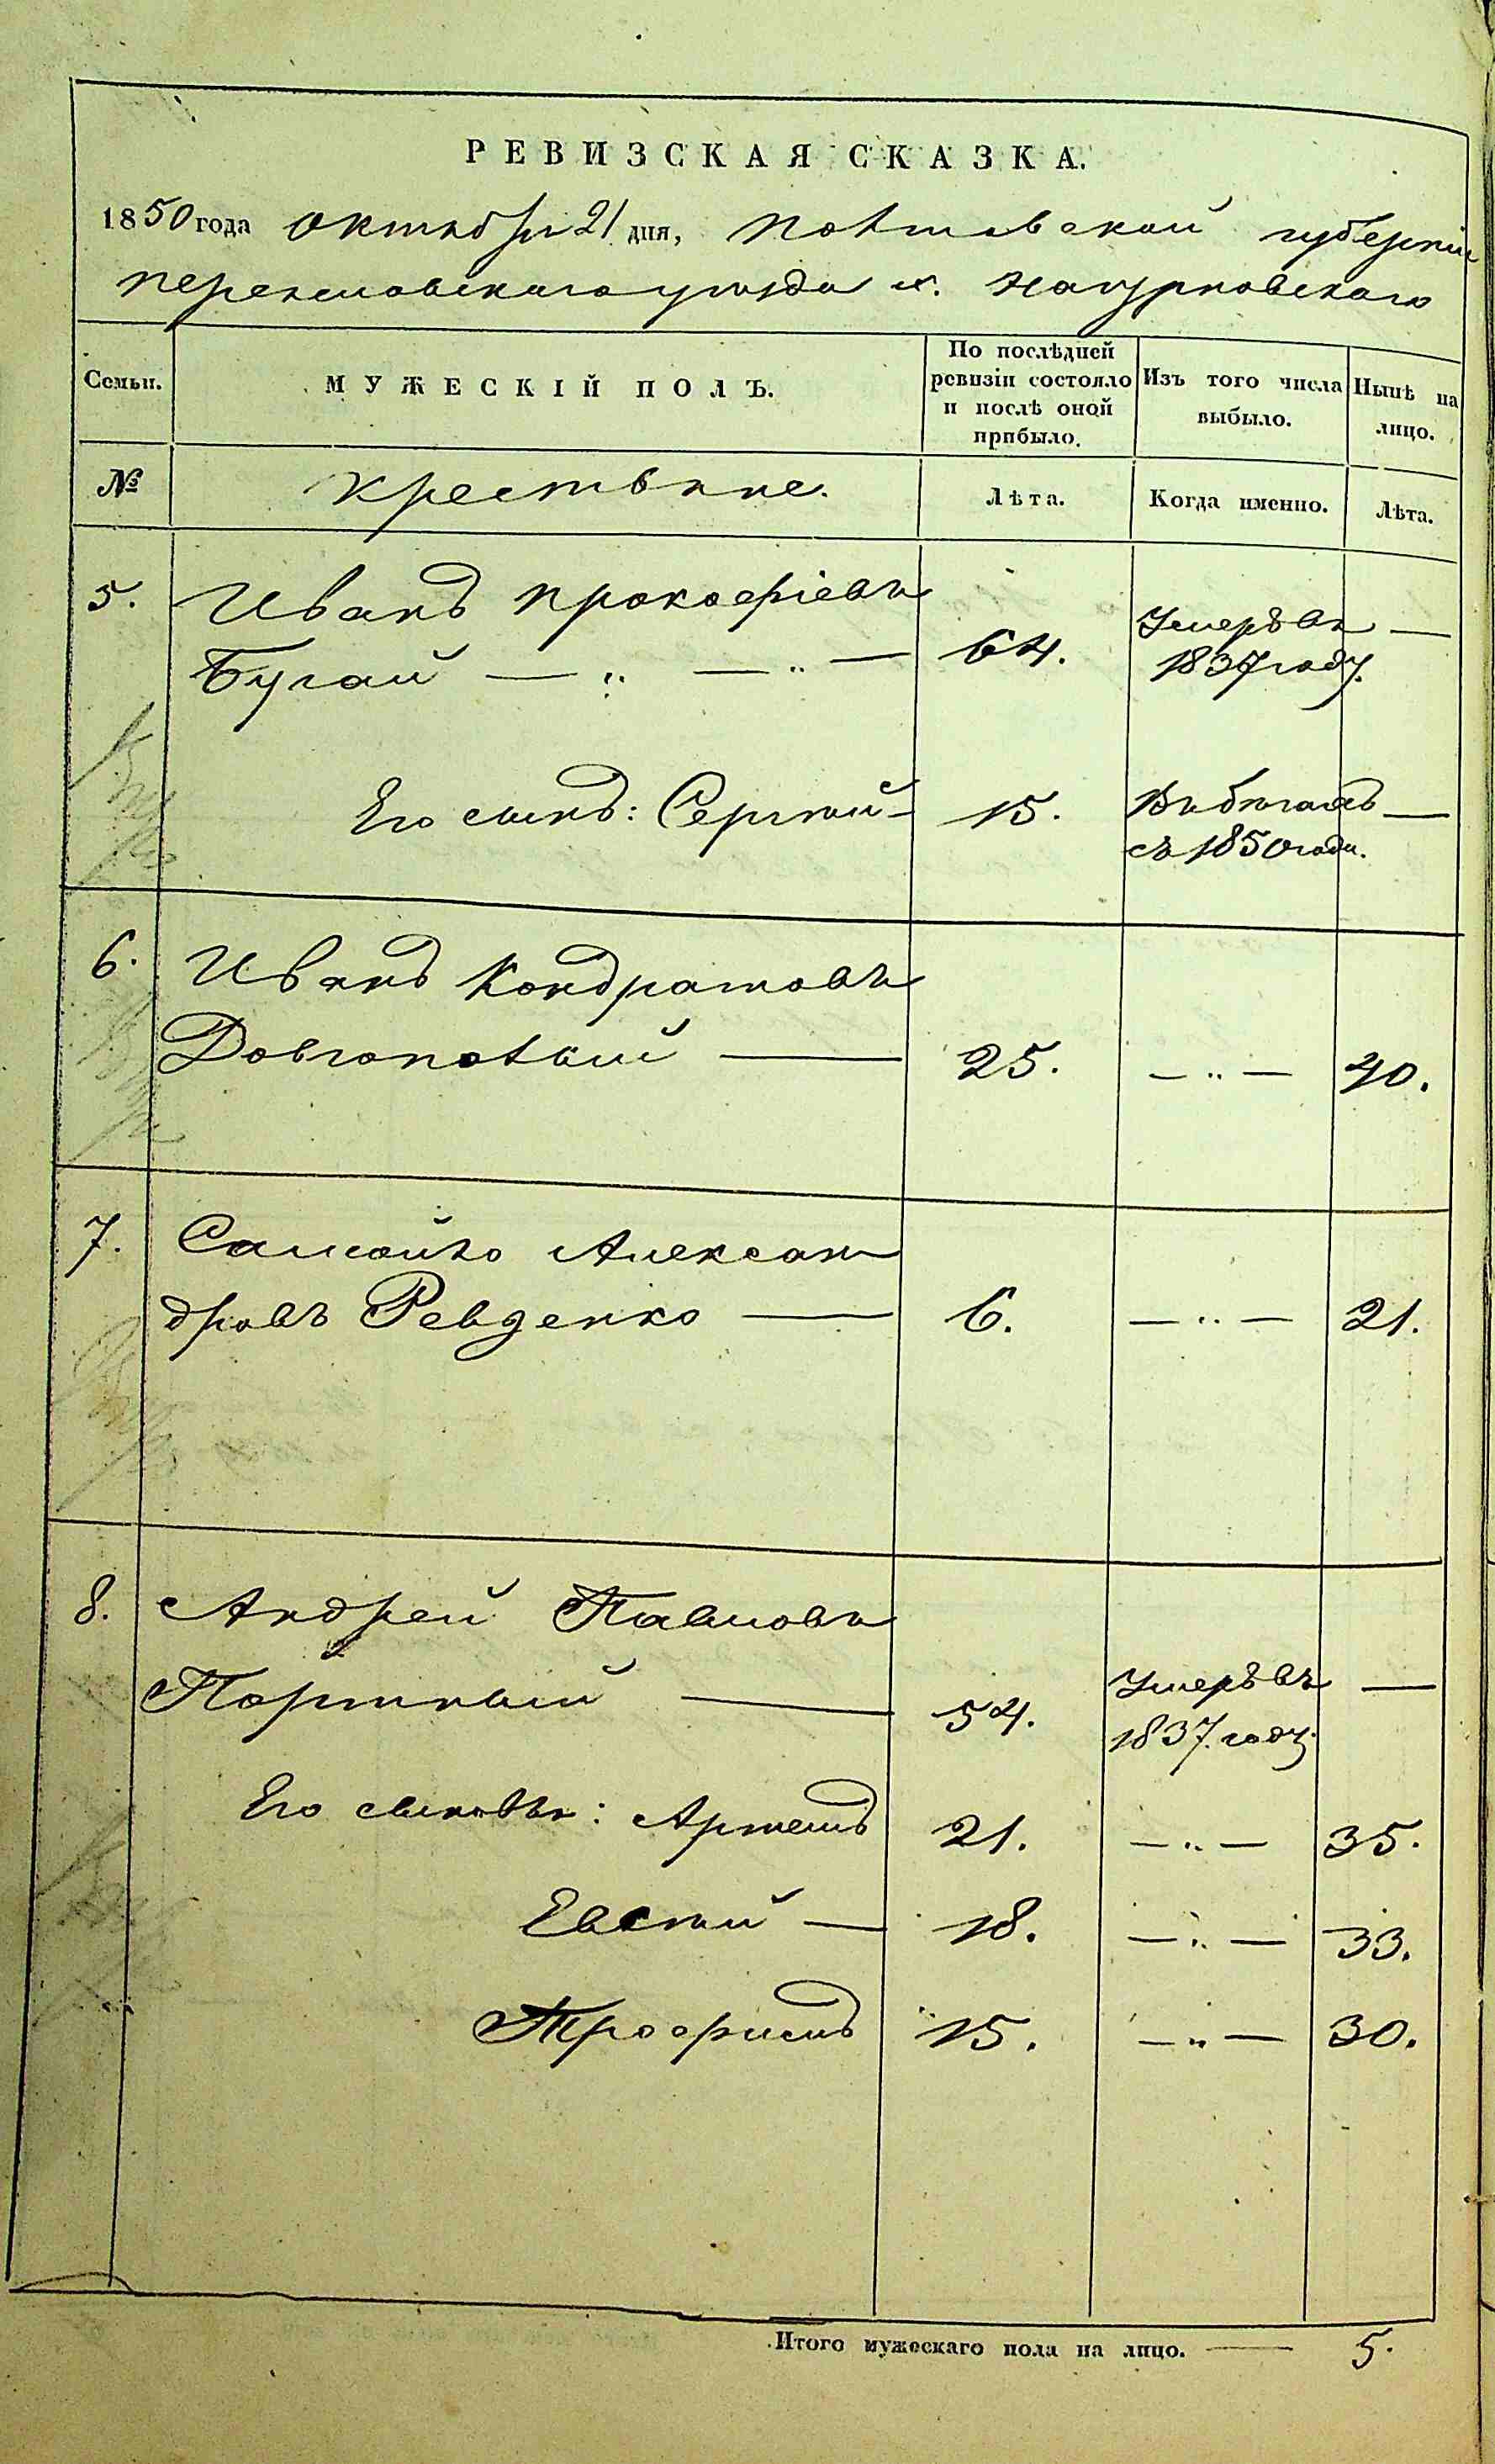 РЕВИЗСКАЯ СКАЗКА.
1850 года Октября 21 дня, Полтавской губерніи
Переяславскаго уѣзда х.
Семьи.
МУЖЕСКІЙ ПОЛЪ.
По послѣдней ревизіи состояло и послѣ оной прибыло.
Изъ того числа выбыло.
Нынѣ на лицо.
№
Крестьяне.
Лѣта.
Когда именно.
Лѣта.
5. Иванъ Прокофіевъ
Бугай — „ — „ — 64. Умеръ въ —
1837 году.
Его сынъ: Сергѣй — 15. Въ бѣгахъ —
съ 1850 года.
6. Иванъ Кондратовъ
Довгополый — 25. — „ — 40.
7. Самойло Алексан
дровъ Ревденко — 6. — „ — 21.
8. Андрей Павловъ
Портный — 54. Умеръ въ —
1837. году.
Его сыновья: Артемъ 21. — „ — 35.
Евсѣй — 18. — „ — 33.
Трофимъ 15. — „ — 30.
Итого мужескаго пола на лицо. — 5.